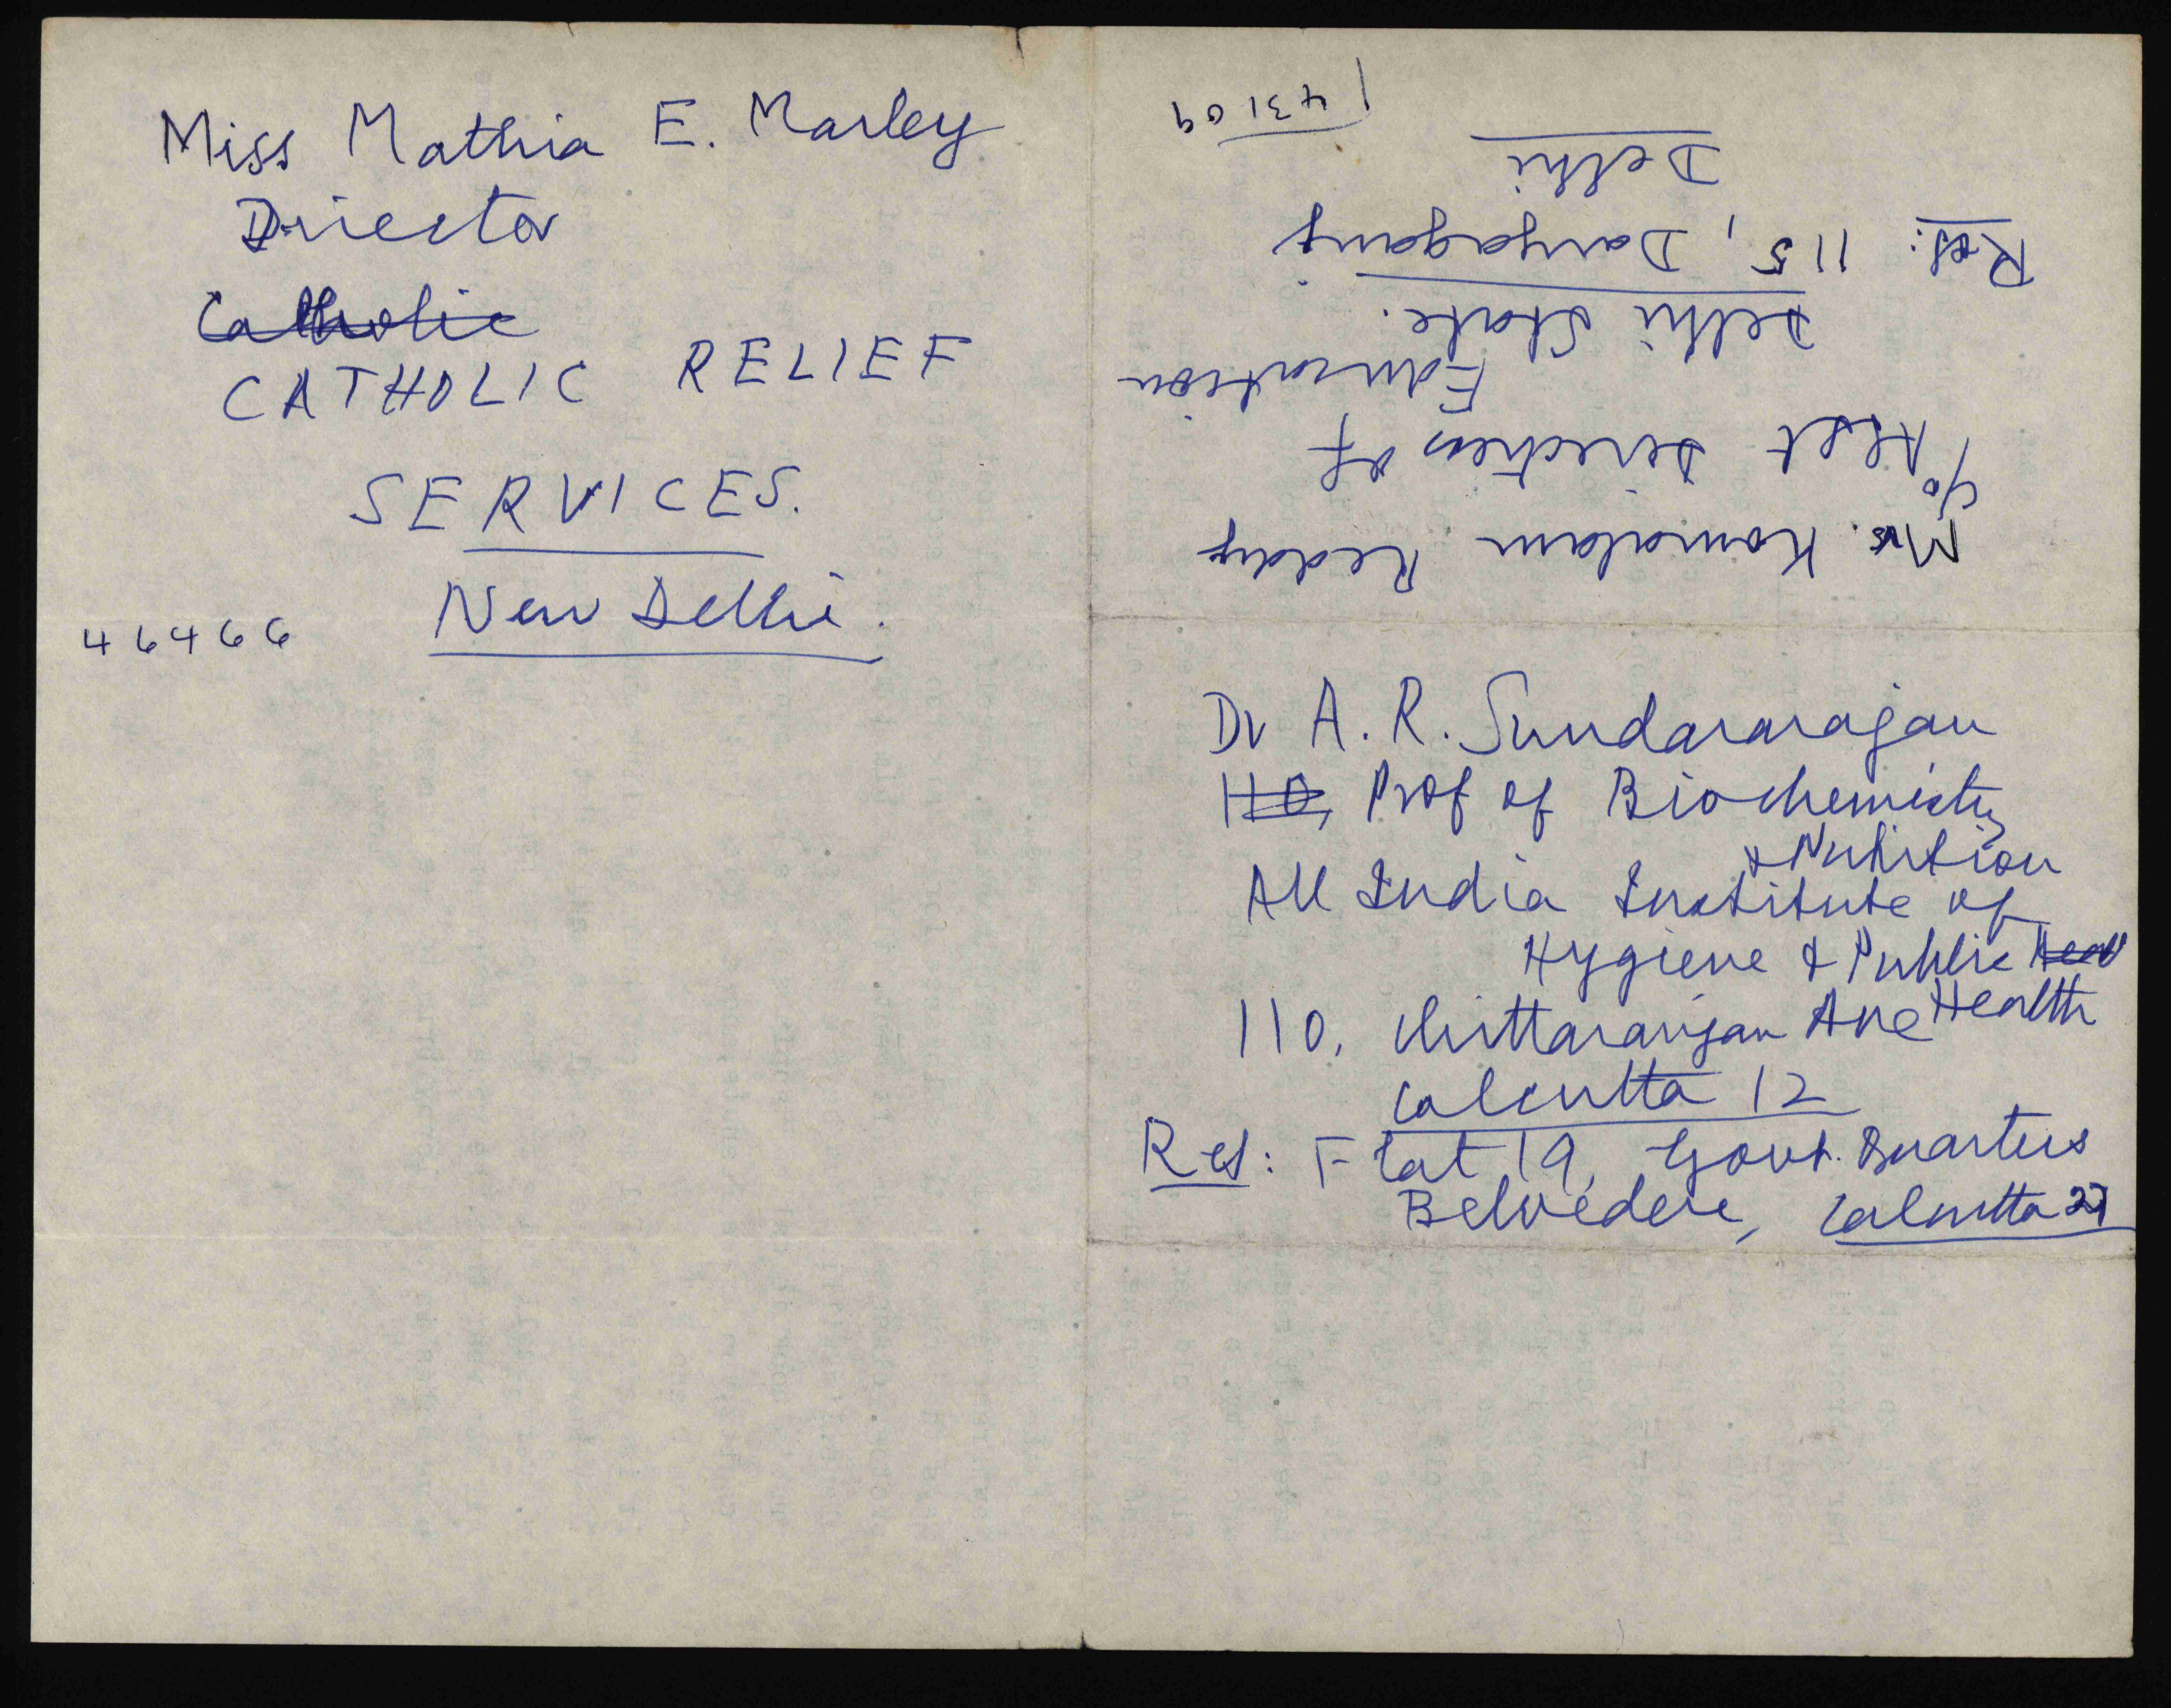 Miss Mathia E. Marley
Director
Catholic
CATHOLIC RELIEF
SERVICES.
New Delhi.
46466
Mrs. Kamalam Reddy
c/o Asst Director of
Education
Delhi State.
Res: 115, Daryaganj
Delhi
43109
Dr A. R. Sundararajan
HO, Prof of Biochemistry
& Nutrition
All India Institute of
Hygiene & Public Heal
Health
110, Chittaranjan Ave
Calcutta 12
Res: Flat 19, Govt. Quarters
Belvedere, Calcutta 27